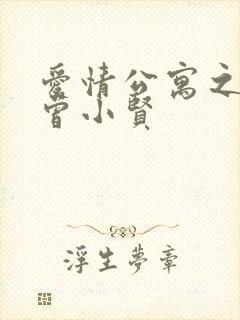 愛情公寓之
曾小賢
浮生夢章